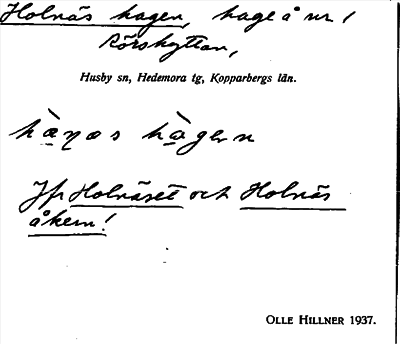 Holnäs hagen, hage å nr 1
Rörshyttan,
Husby sn, Hedemora tg, Kopparbergs län.
hæ̀næs hàgern
Jfr Holnäset och Holnäs
åkern!
OLLE HILLNER 1937.